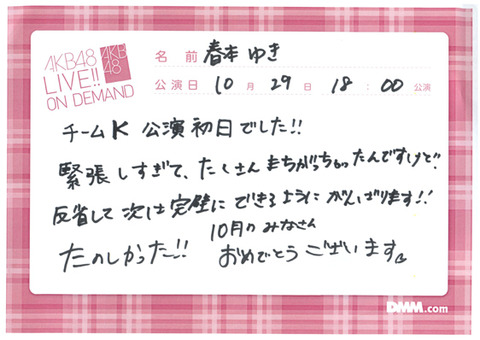 AKB48
LIVE!!
ON DEMAND
AKB
48
名前 春本 ゆき
公演日 10月29日 18:00公演
チームK 公演初日でした!!
緊張しすぎて、たくさんまちがっちゃったんですけど!
反省して次は完璧にできるようにがんばります!!
たのしかった!!
10月のみなさん
おめでとうございます。
DMM.com